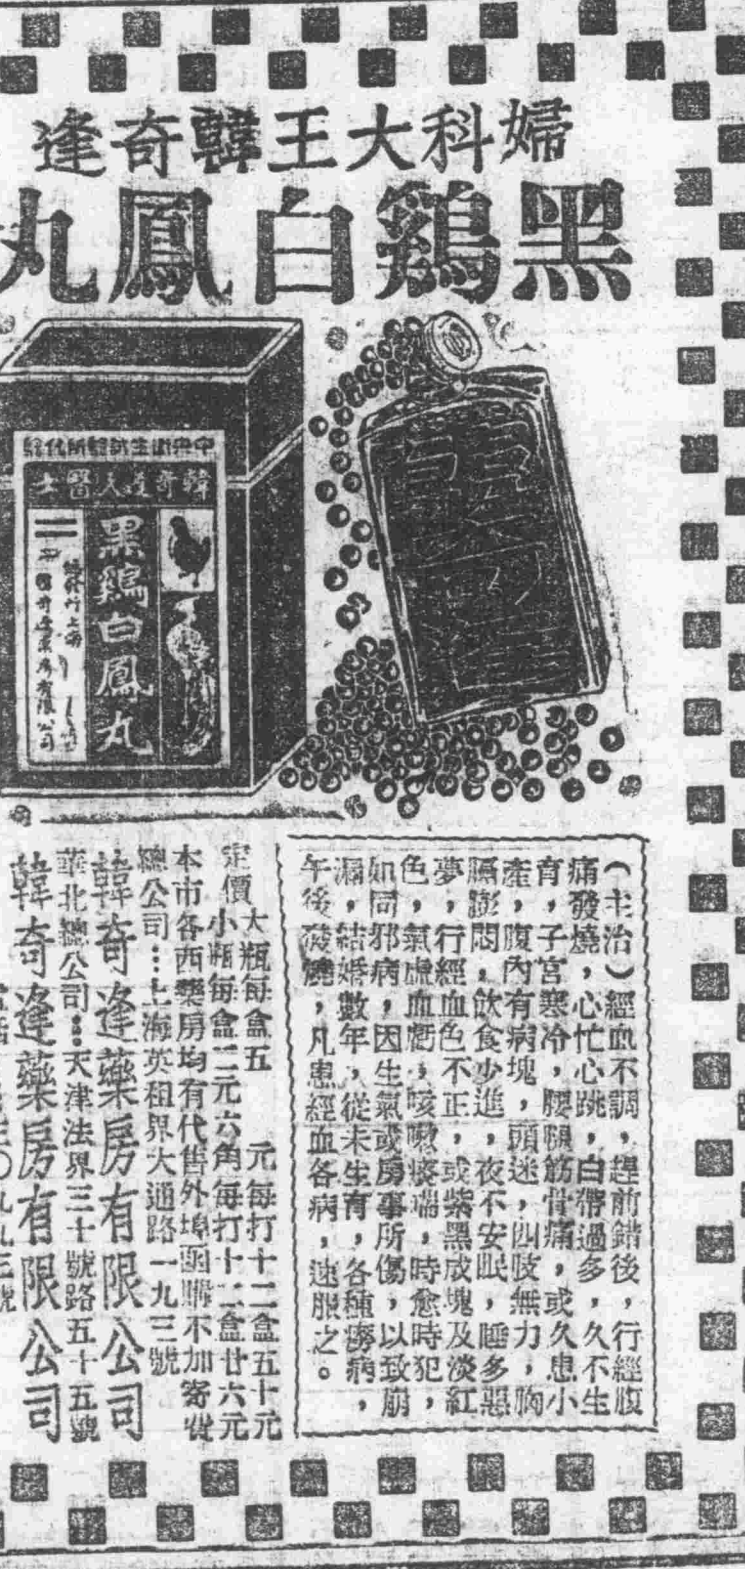 婦科大王韓奇逢
黑鷄白鳳丸
中央衛生試驗所化驗
韓奇逢大醫士
黑鷄白鳳丸
總發行上海
韓奇逢藥房有限公司
（主治）經血不調，趕前錯後，行經腹
痛發燒，心忙心跳，白帶過多，久不生
育，子宮寒冷，腰腿筋骨痛，或久患小
產，腹內有病塊，頭迷，四肢無力，胸
膈膨悶，飲食少進，夜不安眠，睡多惡
夢，行經血色不正，或紫黑成塊及淡紅
色，氣虛血虧，咳嗽痰喘，時愈時犯，
如同邪病，因生氣或房事所傷，以致崩
漏，結婚數年，從未生育，各種癆病，
午後發燒，凡患經血各病，速服之。
定價 大瓶每盒五元每打十二盒五十元
小瓶每盒二元六角每打十二盒廿六元
本市各西藥房均有代售外埠函購不加寄費
總公司：上海英租界大通路一九三號
韓奇逢藥房有限公司
華北總公司：天津法界三十號路五十五號
韓奇逢藥房有限公司